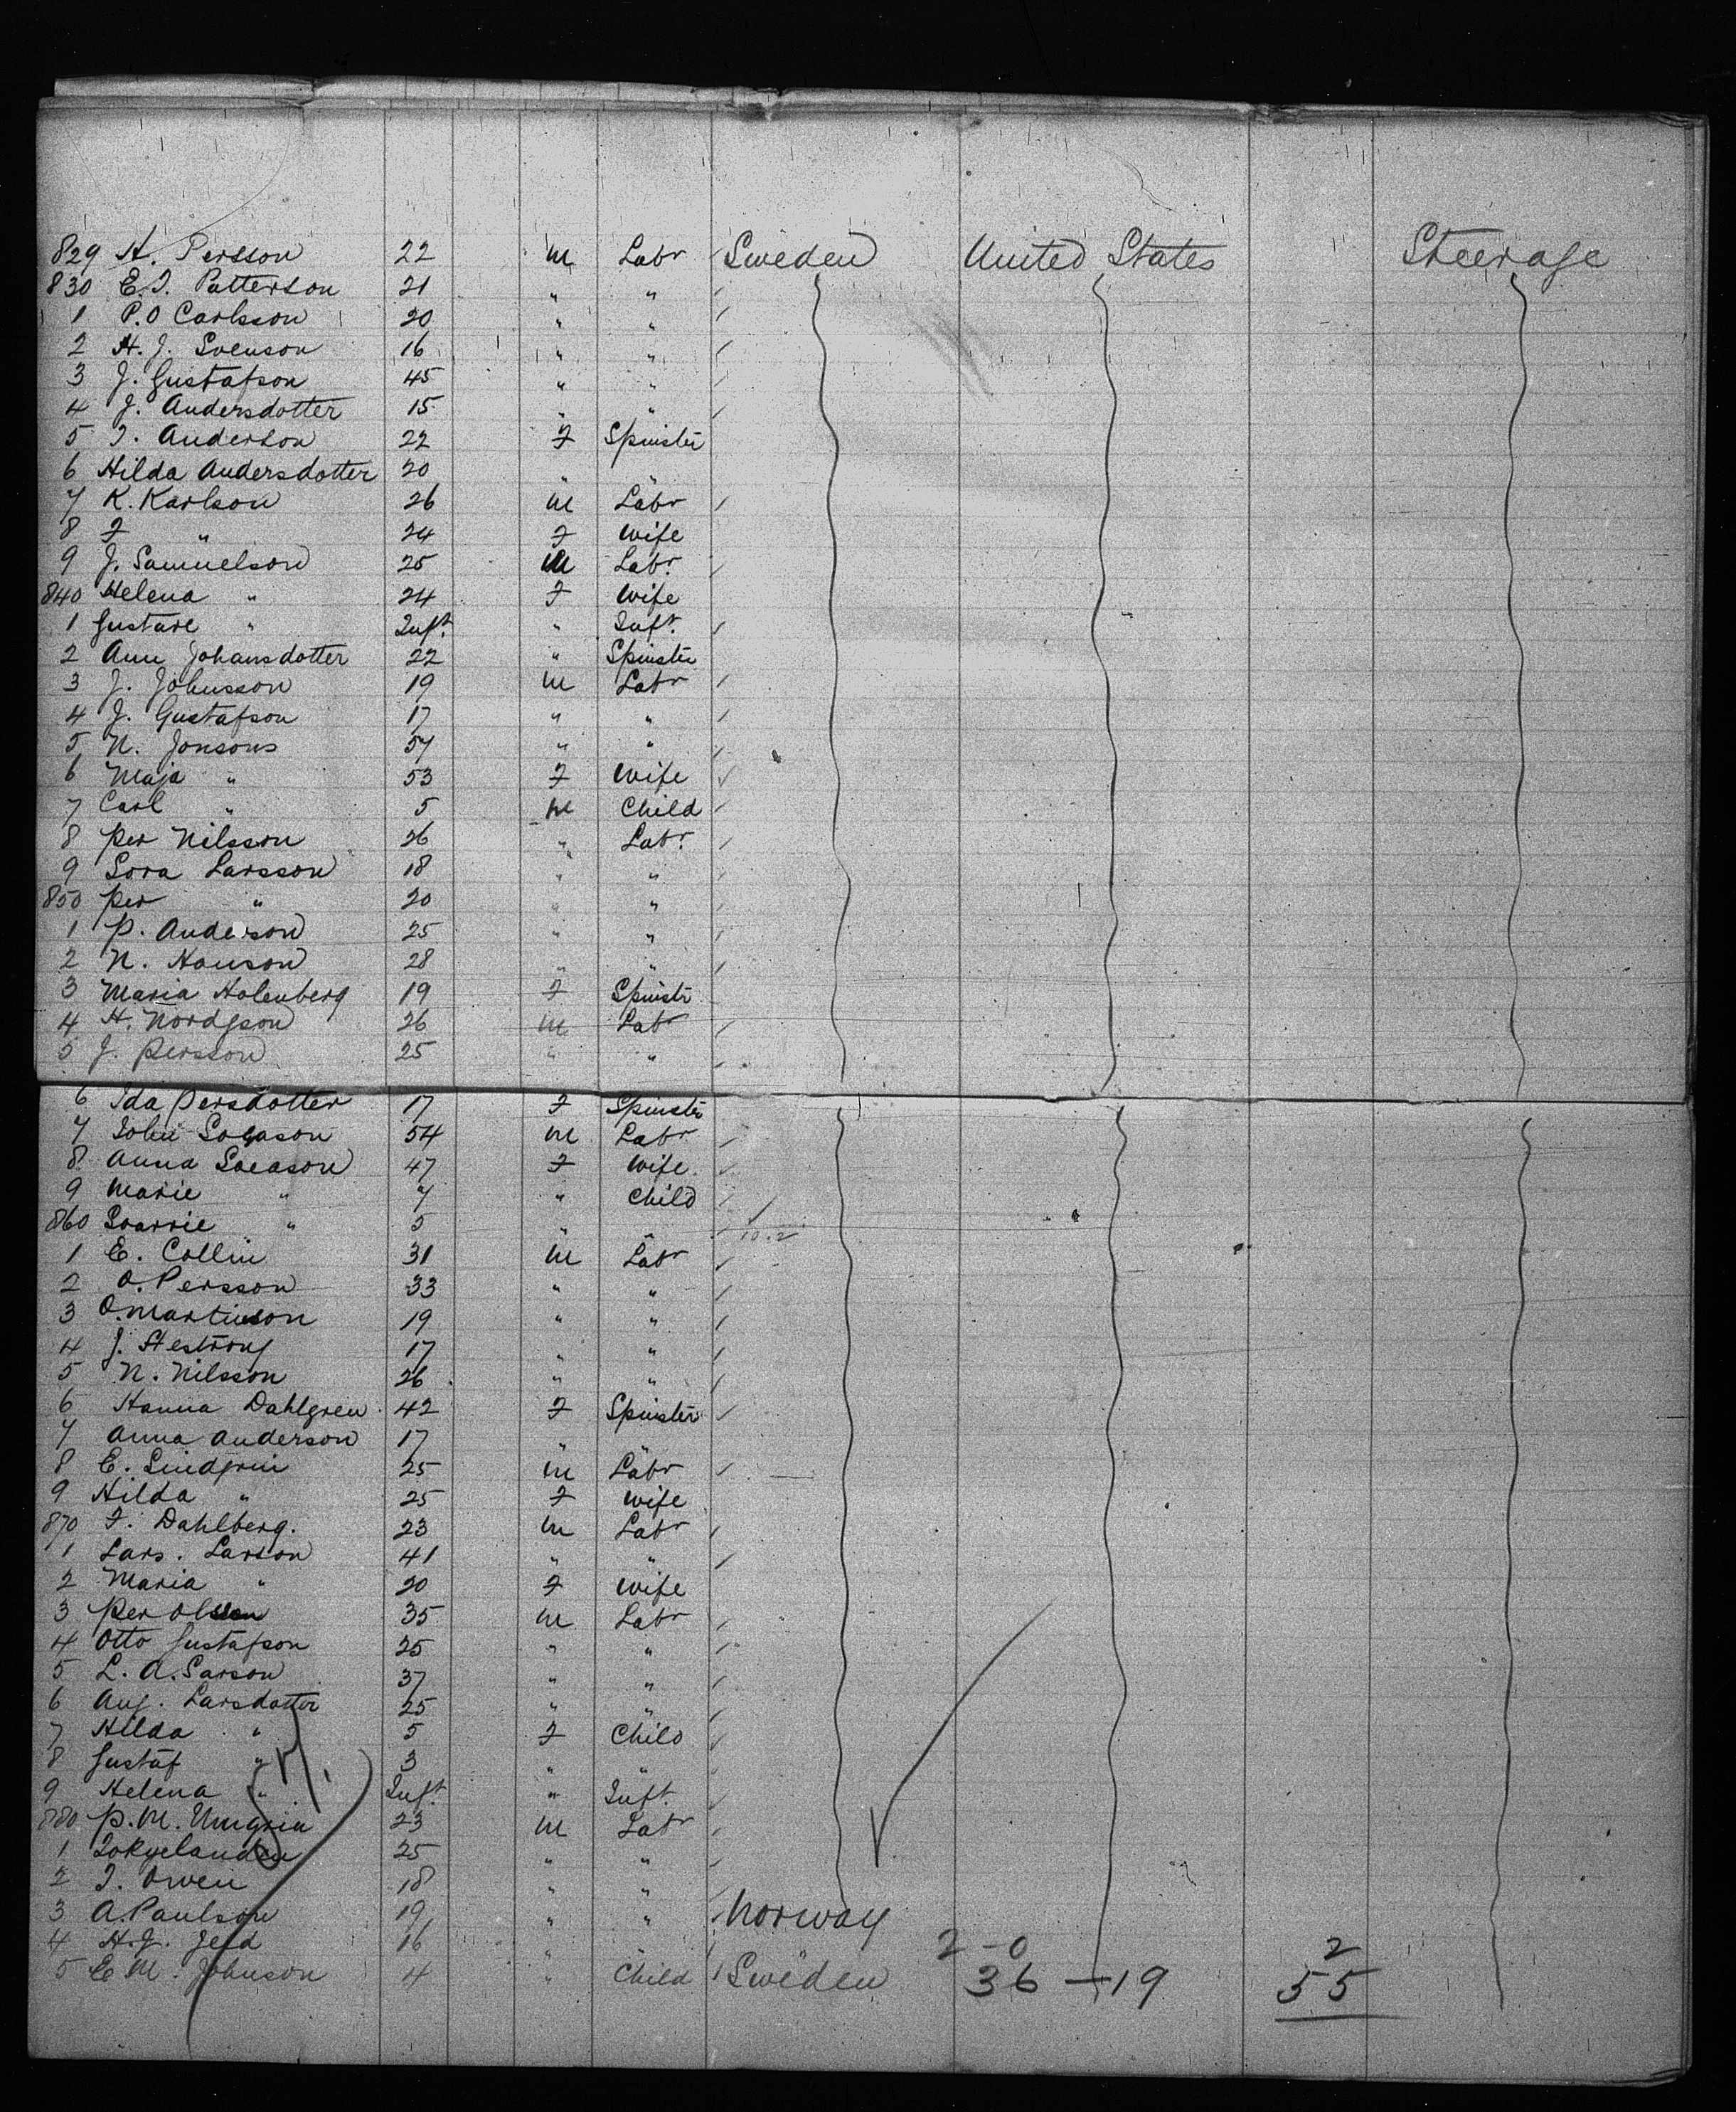 829 A. Persson 22 m Labr Sweden United States Steerage
830 E. J. Patterson 21 " "
1 P. O Carlsson 20 " "
2 H. J. Svenson 16 " "
3 J. Gustafson 45 " "
4 J. Andersdotter 15 " "
5 J. Anderson 22 F Spinster
6 Hilda Andersdotter 20 " "
7 K. Karlson 26 m Labr
8 F " 24 F Wife
9 J. Samuelson 25 m Labr.
840 Helena " 24 F Wife
1 Gustave " Inft. " Inft.
2 Ann Johansdotter 22 " Spinster
3 J. Johnsson 19 m Labr
4 J. Gustafson 17 " "
5 N. Jonsons 57 " "
6 Maja " 53 F Wife
7 Carl " 5 m Child
8 Per Nilsson 26 " Labr.
9 Sora Larsson 18 " "
850 Per " 20 " "
1 P. Anderson 25 " "
2 N. Hanson 28 " "
3 Maria Holenberg 19 F Spinstr
4 H. Nordgson 26 m Labr
5 J. Persson 25 " "
6 Ida Persdotter 17 F Spinster
7 John 54 m Labr
8 Anna 47 F Wife
9 Marie " 7 " Child
860 " 5 " "
1 E. Collin 31 m Labr
2 O. Persson 33 " "
3 O. Martinson 19 " "
4 J. 17 " "
5 N. Nilsson 26 " "
6 Hanna Dahlgren 42 F Spinster
7 Anna Anderson 17 " "
8 E. Lindgrin 25 m Labr
9 Hilda " 25 F Wife
870 F. Dahlberg. 23 m Labr
1 Lars. Larson 41 " "
2 Maria " 20 F Wife
3 Per Olsson 35 m Labr
4 Otto Gustafson 25 " "
5 L. A. Larson 37 " "
6 Aug. Larsdotter 25 " "
7 Hilda " 5 F Child
8 Gustaf " 3 " "
9 Helena " Inft. " Inft.
880 P. M. 23 m Labr
1 25 " "
2 J. Owen 18 " "
3 A. Paulson 19 " " Norway
4 H. J. 16 " 2-0 2
5 E M. Johnson 4 " Child Sweden 36-19 55